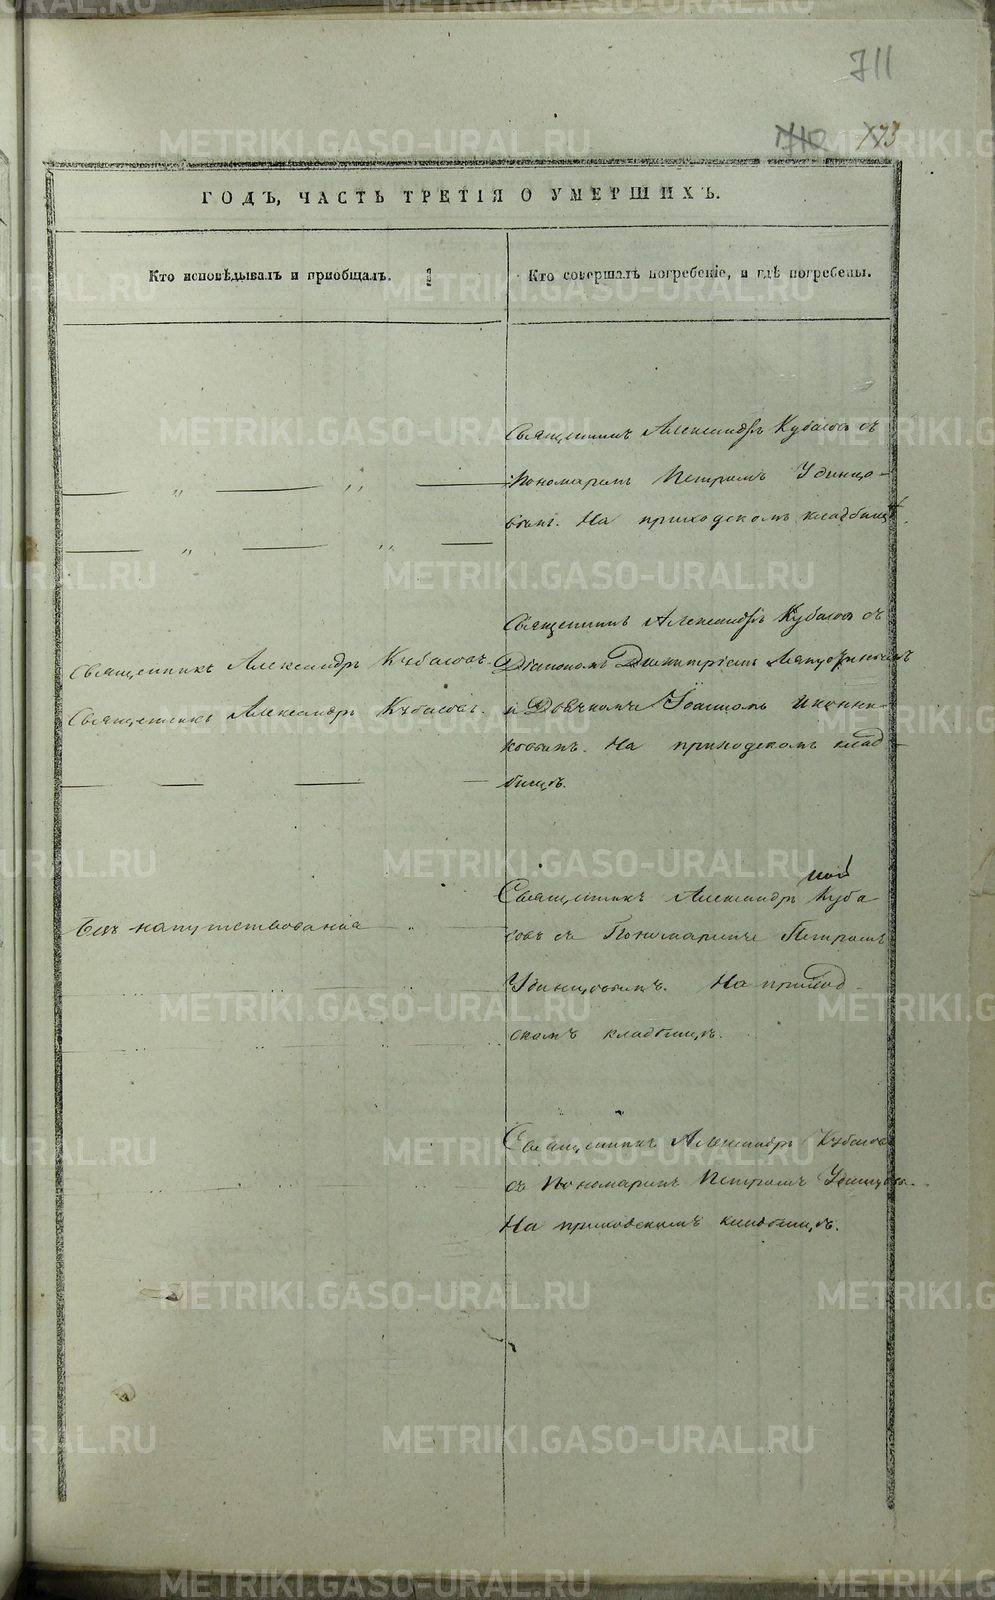 711
1710 173
ГОДЪ, ЧАСТЬ ТРЕТІЯ О УМЕРШИХЪ.
Кто исповѣдывалъ и пріобщалъ.
Кто совершалъ погребеніе, и гдѣ погребены.
Священникъ Александръ Кубасовъ съ
Пономаремъ Петромъ Удинцо-
вымъ. На приходскомъ кладбищѣ.
Священникъ Александръ Кубасовъ.
Священникъ Александръ Кубасовъ.
Священникъ Александръ Кубасовъ съ
Діакономъ Димитріемъ
и Дьячкомъ Іоанномъ Иконни-
ковымъ. На приходскомъ клад-
бищѣ.
Безъ напутствованія
Священникъ Александръ Куба
совъ съ Пономаремъ Петромъ
Удинцовымъ. На приход-
скомъ кладбищѣ.
Священникъ Александръ Кубасовъ
съ Пономаремъ Петромъ
На приходскомъ кладбищѣ.
METRIKI.GASO-URAL.RU